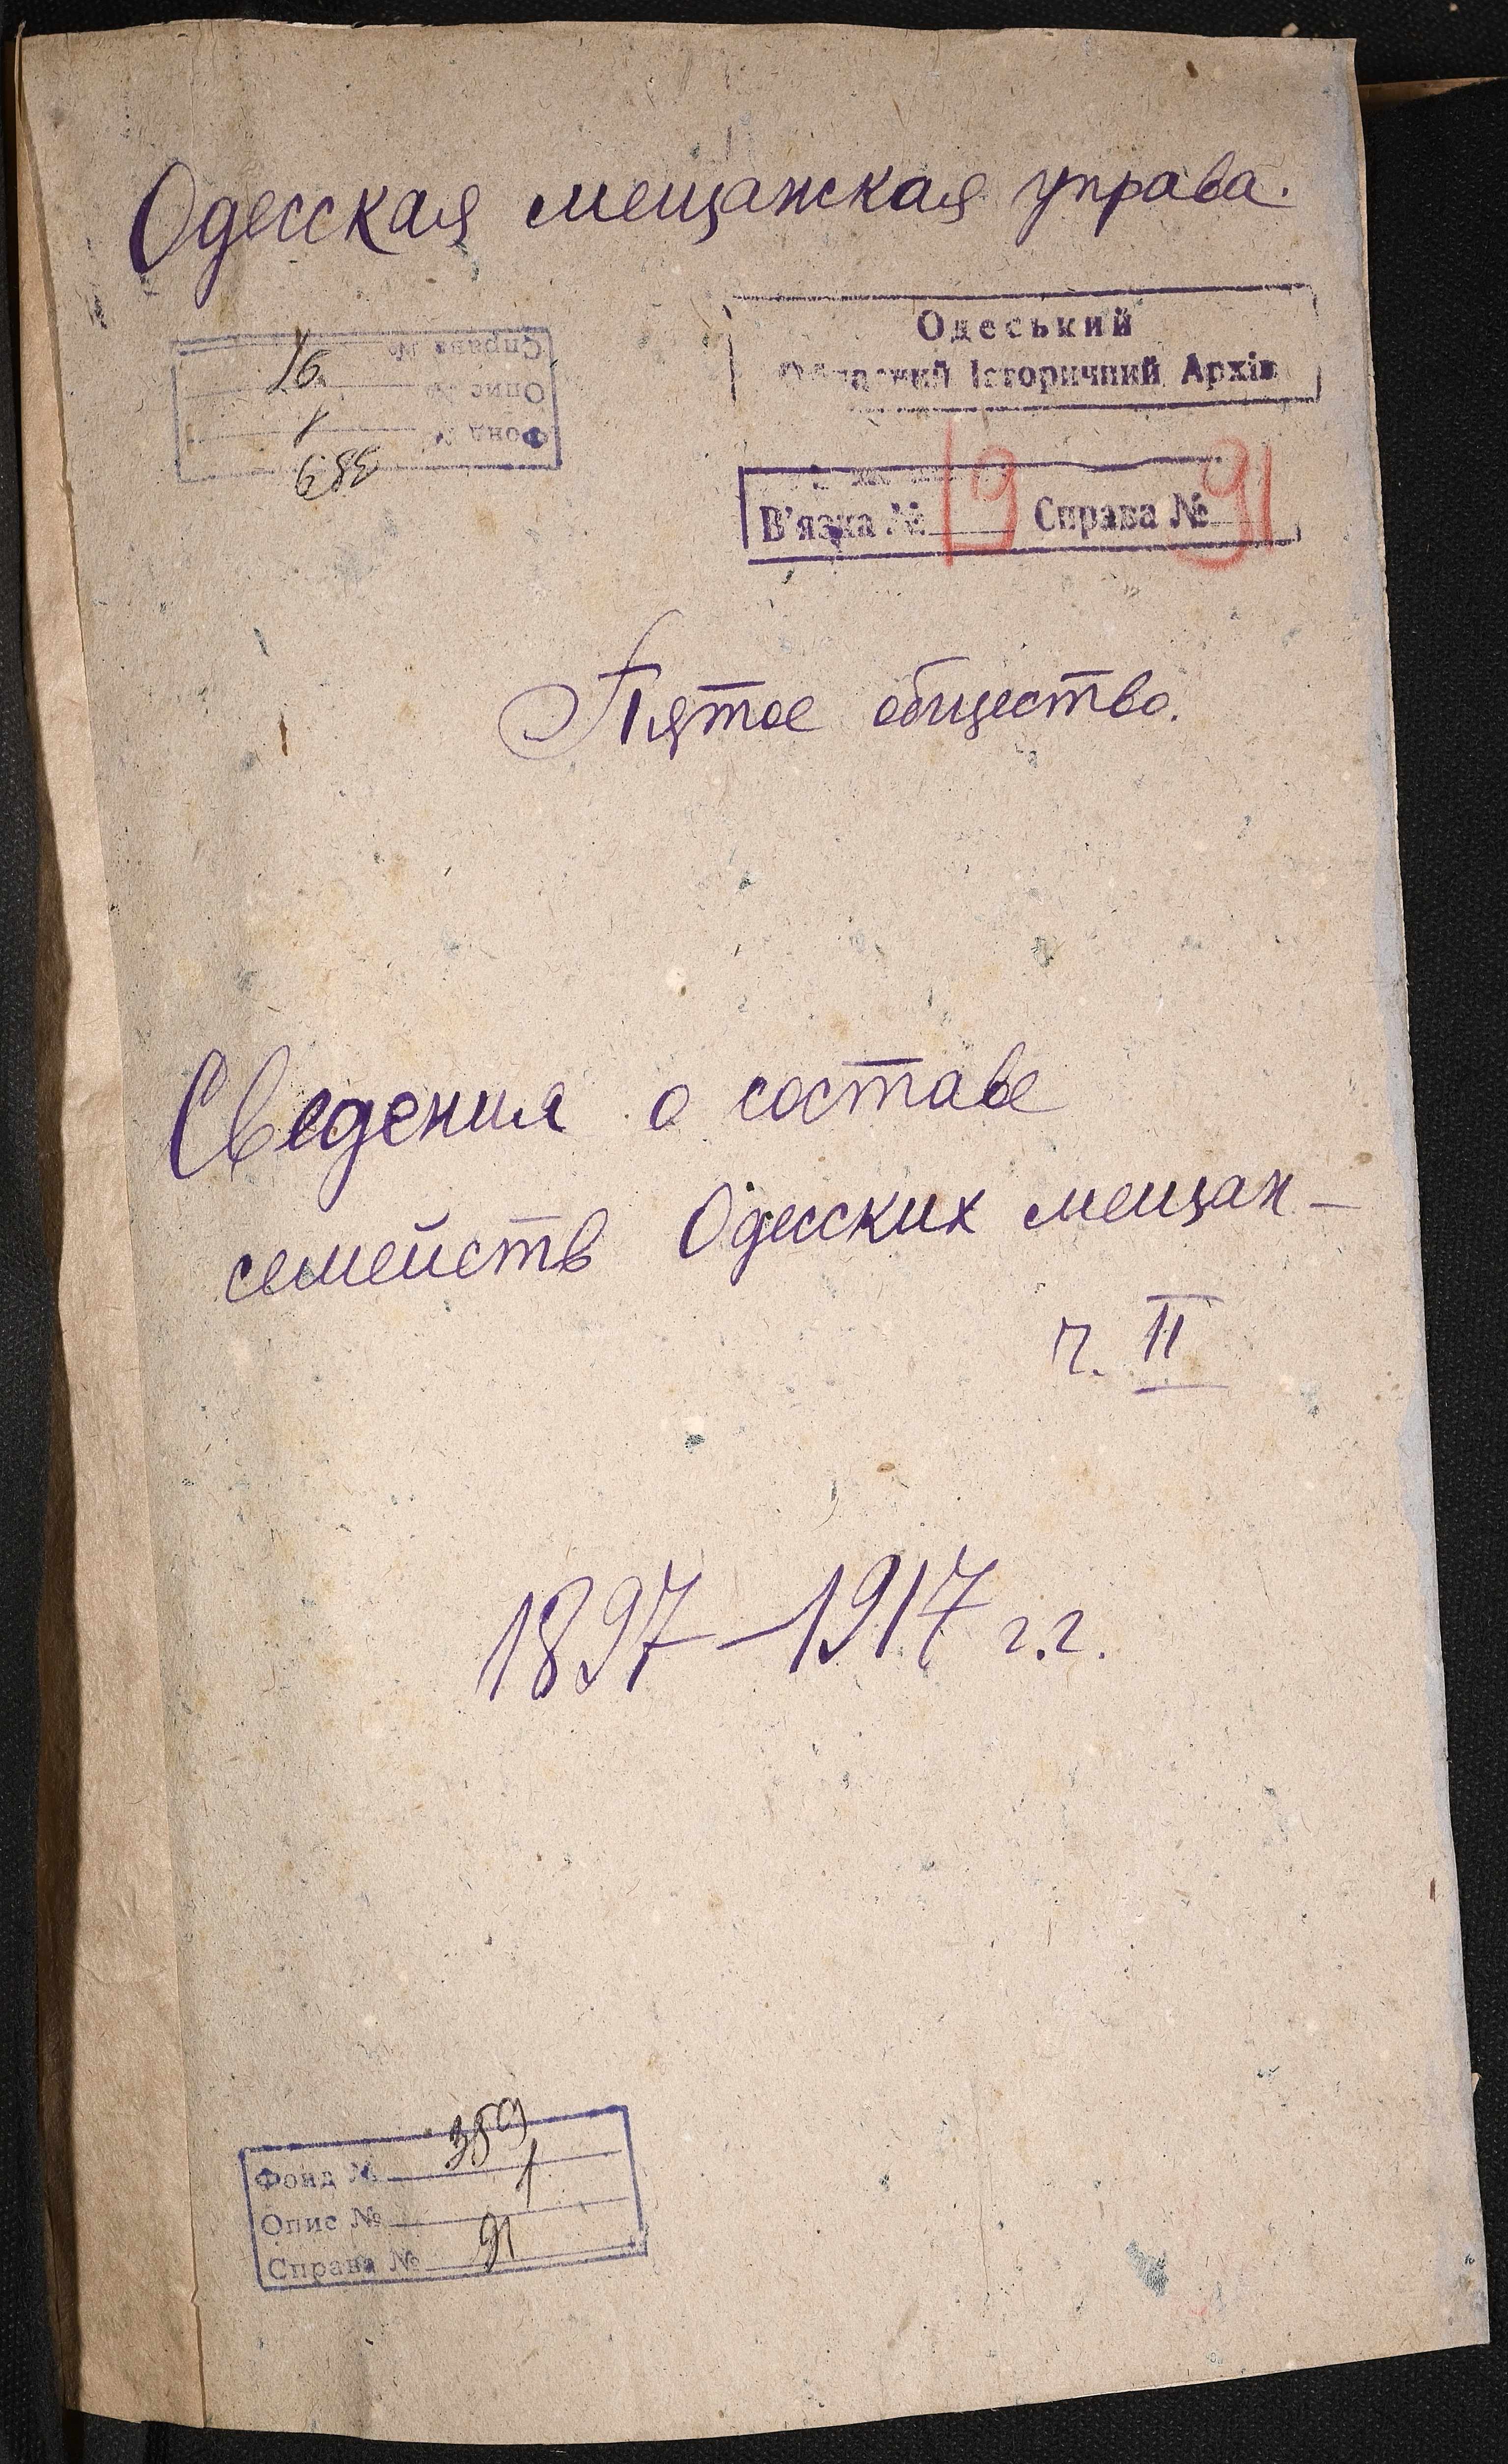 Одесская мещанская управа.
Справа № 91
Опис № 1
Фонд № 359
Одеський
Обласний Історичний Архів
В'язка № 19 Справа № 91
Пятое общество.
Сведения о составе
семейств Одесских мещан-
ч. II
1897-1917 г.г.
Фонд № 359
Опис № 1
Справа № 91